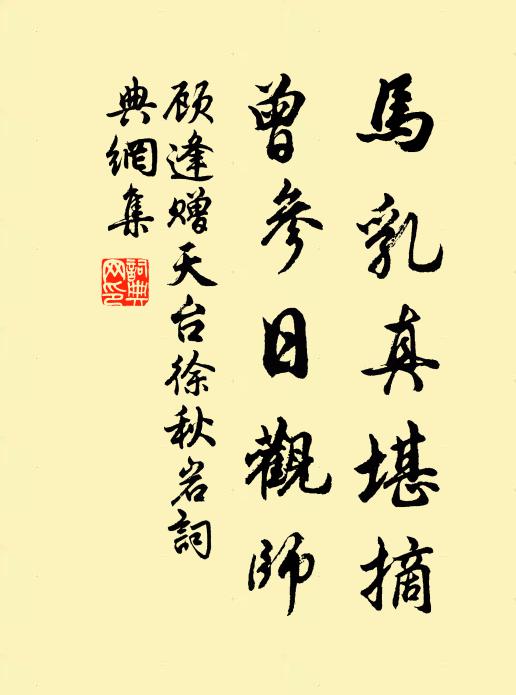 馬乳真堪摘
曾參日觀師
顾逢赠天台徐秋岩詞
典網集
詞典网印